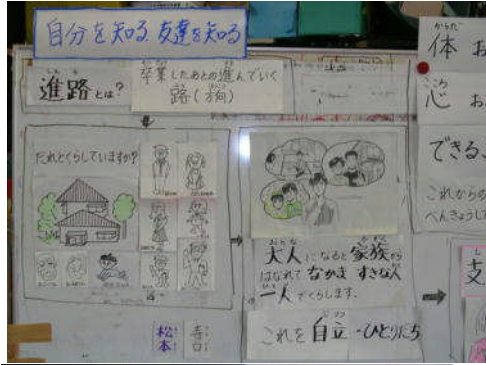 自分を知る 友達を知る
しんろ
進路とは?
卒業したあとの進んでいく
路(方向)
だれとくらしていますか?
おとな
大人になると家族から
はなれてなかま すきな人
一人でくらします。
これを自立・ひとりだち
松本
からだ
体 お
こころ
心 お
できる、
これからの
べんきょうし
支